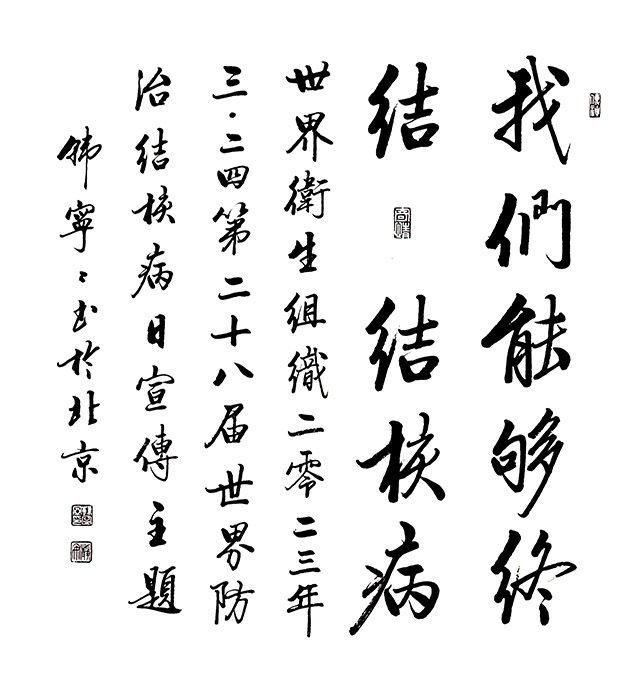 我們能够終
結 結核病
世界衛生組織二零二三年
三·二四第二十八届世界防
治結核病日宣傳主題
韩寧寧书於北京